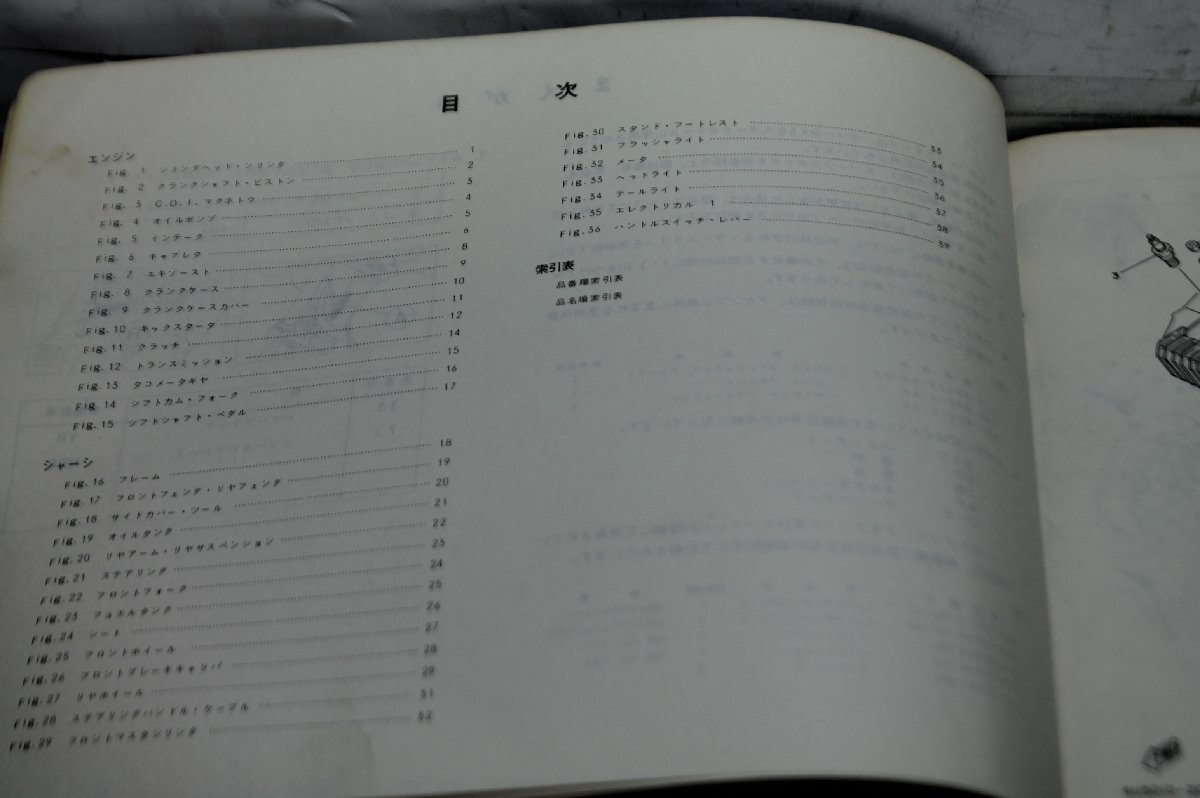 目 次
エンジン
Fig. 1 シリンダヘッド・シリンダ 1
Fig. 2 クランクシャフト・ピストン 2
Fig. 3 C.D.I.マグネトウ 3
Fig. 4 オイルポンプ 4
Fig. 5 インテーク 5
Fig. 6 キャブレタ 6
Fig. 7 エキゾースト 8
Fig. 8 クランクケース 9
Fig. 9 クランクケースカバー 10
Fig. 10 キックスタータ 11
Fig. 11 クラッチ 12
Fig. 12 トランスミッション 14
Fig. 13 タコメータギヤ 15
Fig. 14 シフトカム・フォーク 16
Fig. 15 シフトシャフト・ペダル 17
シャーシ
Fig. 16 フレーム 18
Fig. 17 フロントフェンダ・リヤフェンダ 19
Fig. 18 サイドカバー・ツール 20
Fig. 19 オイルタンク 21
Fig. 20 リヤアーム・リヤサスペンション 22
Fig. 21 ステアリング 23
Fig. 22 フロントフォーク 24
Fig. 23 フュエルタンク 25
Fig. 24 シート 26
Fig. 25 フロントホイール 27
Fig. 26 フロントブレーキキャリパ 28
Fig. 27 リヤホイール 29
Fig. 28 ステアリングハンドル・ケーブル 31
Fig. 29 フロントマスタシリンダ 32
Fig. 30 スタンド・フートレスト 33
Fig. 31 フラッシャライト 34
Fig. 32 メータ 35
Fig. 33 ヘッドライト 36
Fig. 34 テールライト 37
Fig. 35 エレクトリカル 1 38
Fig. 36 ハンドルスイッチ・レバー 39
索引表
品番順索引表
品名順索引表
3